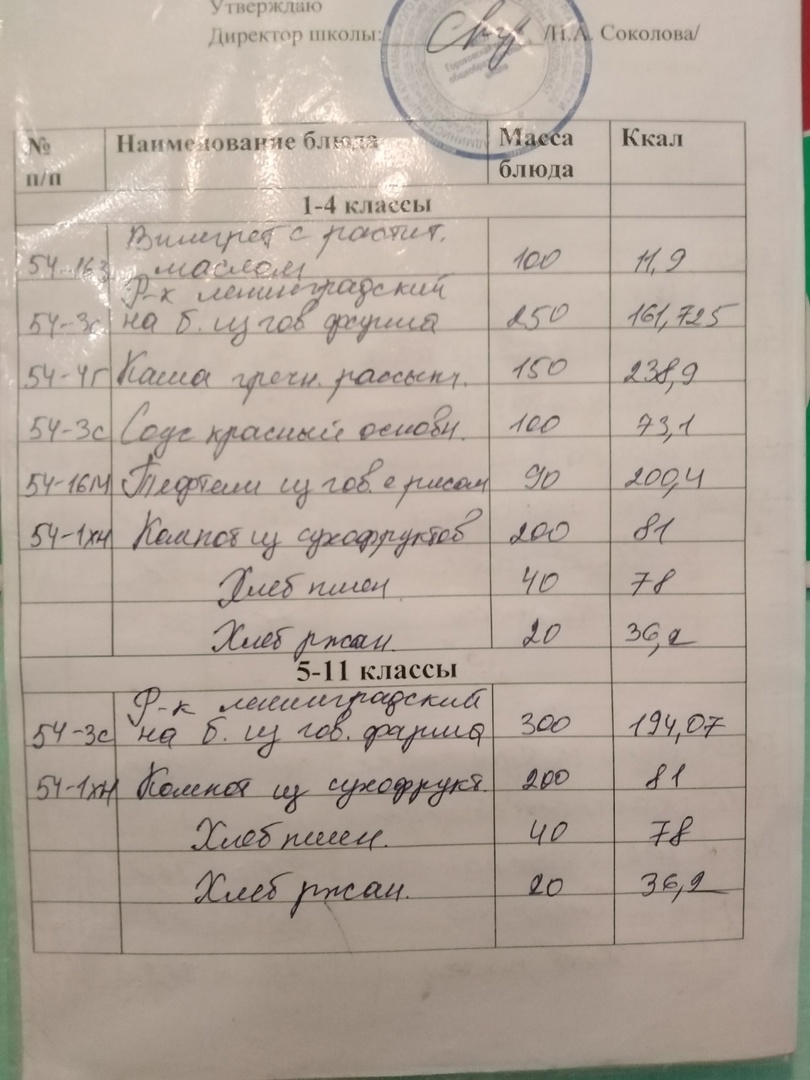 Утверждаю
Директор школы: /Н.А. Соколова/
№ п/п Наименование блюда Масса блюда Ккал
1-4 классы
54-16з Винегрет с растит. маслом 100 11,9
54-3с Р-к ленинградский на б. из гов фарша 250 161,725
54-4г Каша гречн. рассыпч. 150 238,9
54-3с Соус красный основн. 100 73,1
54-16м Тефтели из гов. с рисом 90 200,4
54-1хн Компот из сухофруктов 200 81
Хлеб пшен 40 78
Хлеб ржан. 20 36,2
5-11 классы
54-3с Р-к ленинградский на б. из гов. фарша 300 194,07
54-1хн Компот из сухофрукт. 200 81
Хлеб пшен. 40 78
Хлеб ржан. 20 36,2